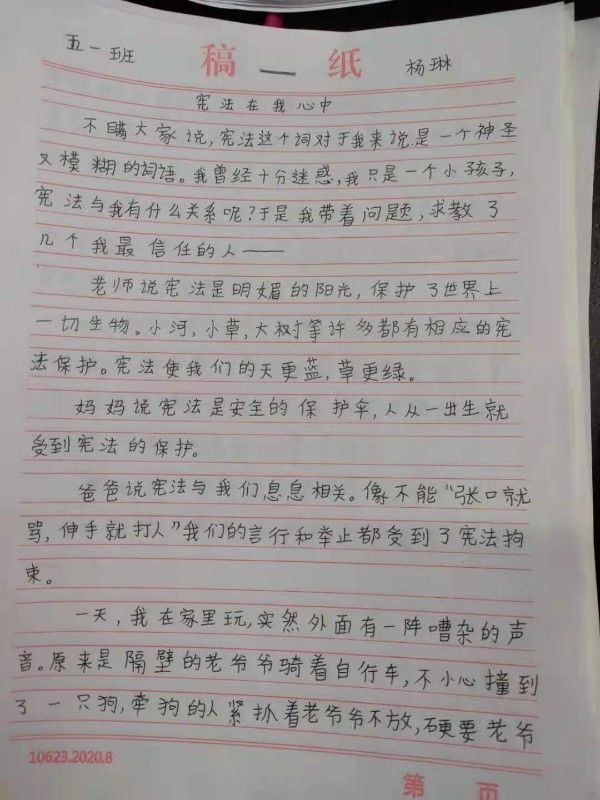 五一班 稿 纸 杨琳
宪法在我心中
不瞒大家说,宪法这个词对于我来说是一个神圣
又模糊的词语。我曾经十分迷惑,我只是一个小孩子,
宪法与我有什么关系呢?于是我带着问题,求教了
几个我最信任的人——
老师说宪法是明媚的阳光,保护了世界上
一切生物。小河,小草,大树等许多都有相应的宪
法保护。宪法使我们的天更蓝,草更绿。
妈妈说宪法是安全的保护伞,人从一出生就
受到宪法的保护。
爸爸说宪法与我们息息相关。像不能“张口就
骂,伸手就打人”我们的言行和举止都受到了宪法拘
束。
一天,我在家里玩,突然外面有一阵嘈杂的声
音。原来是隔壁的老爷爷骑着自行车,不小心撞到
了一只狗,牵狗的人紧抓着老爷爷不放,硬要老爷
10623.2020.8
第 页